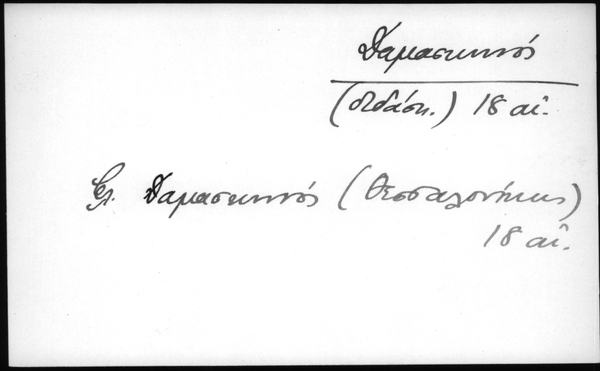 Δαμασκηνός
(διδάσκ.) 18 αἰ.
Βλ. Δαμασκηνός (Θεσσαλονίκης)
18 αἰ.